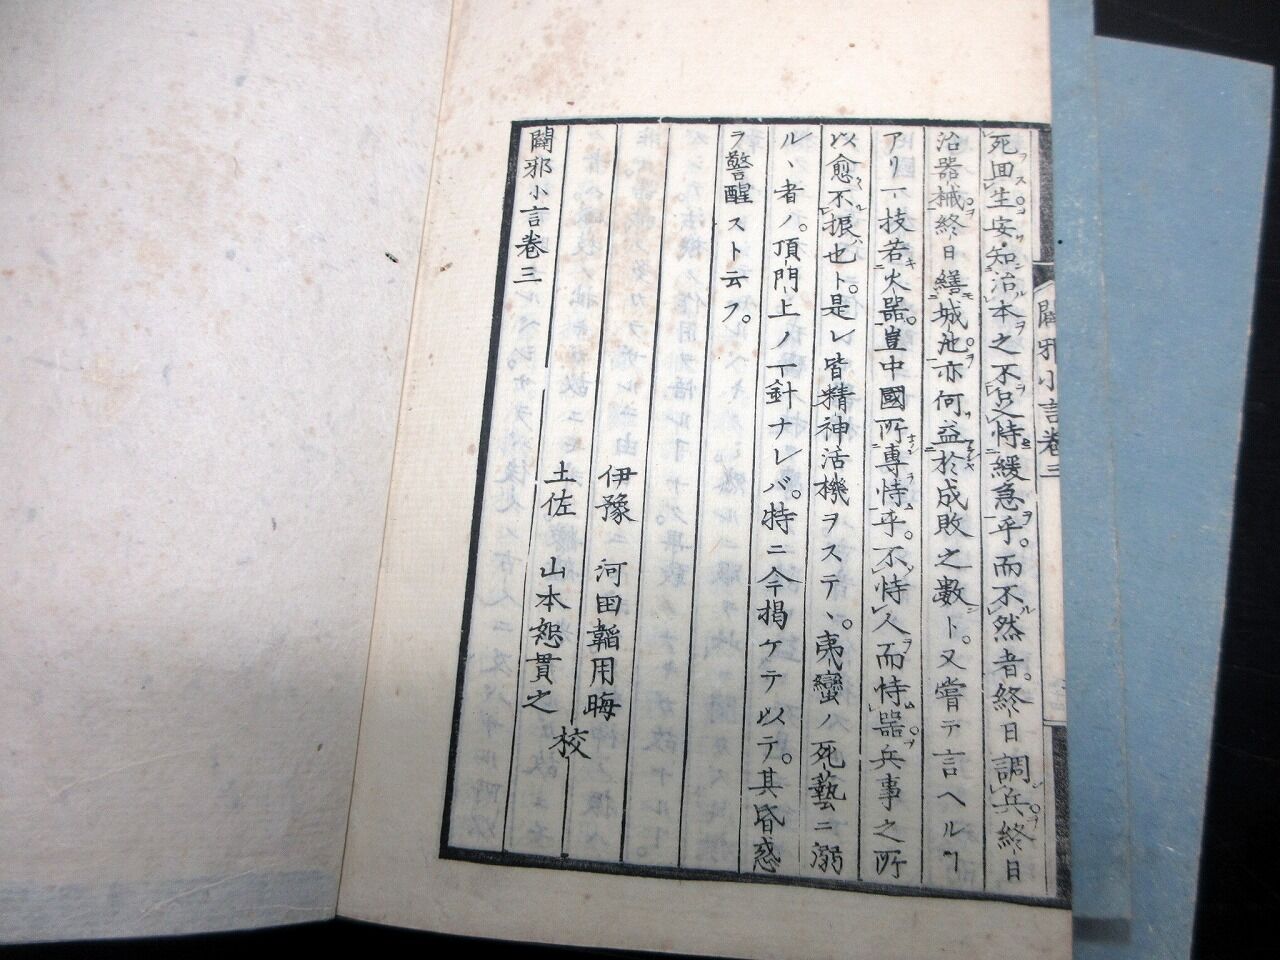 闢邪小言卷三
死囬生安知治本之不足恃緩急乎。而不然者。終日調兵終日
治器械終日繕城池亦何益於成敗之數ト。又嘗テ言ヘルヿ
アリ一技若火器。豈中國所專恃乎。不恃人而恃器兵事之所
以愈不振也ト。是レ皆精神活機ヲステヽ。夷蠻ノ死藝ニ溺
ルヽ者ノ。頂門上ノ一針ナレバ。特ニ今掲ケテ以テ。其昏惑
ヲ警醒スト云フ。
伊豫 河田韜用晦
土佐 山本恕貫之
校
闢邪小言卷三